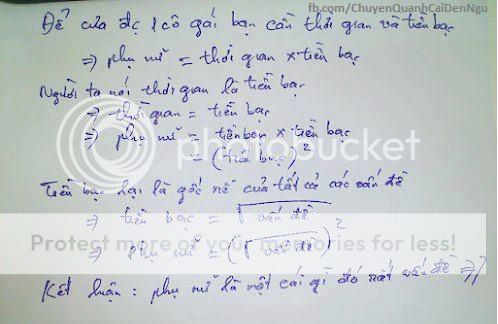 fb.com/ChuyenQuanhCaiDenNgu
Để cưa đc 1 cô gái bạn cần thời gian và tiền bạc
⇒ phụ nữ = thời gian × tiền bạc
Người ta nói thời gian là tiền bạc
⇒ thời gian = tiền bạc
⇒ phụ nữ = tiền bạc × tiền bạc
= (tiền bạc)²
photobucket
Tiền bạc lại là gốc rễ của tất cả các vấn đề
⇒ tiền bạc = √vấn đề
Protect more of your memories for less!
⇒ phụ nữ = (√vấn đề)²
Kết luận : phụ nữ là một cái gì đó rất vấn đề